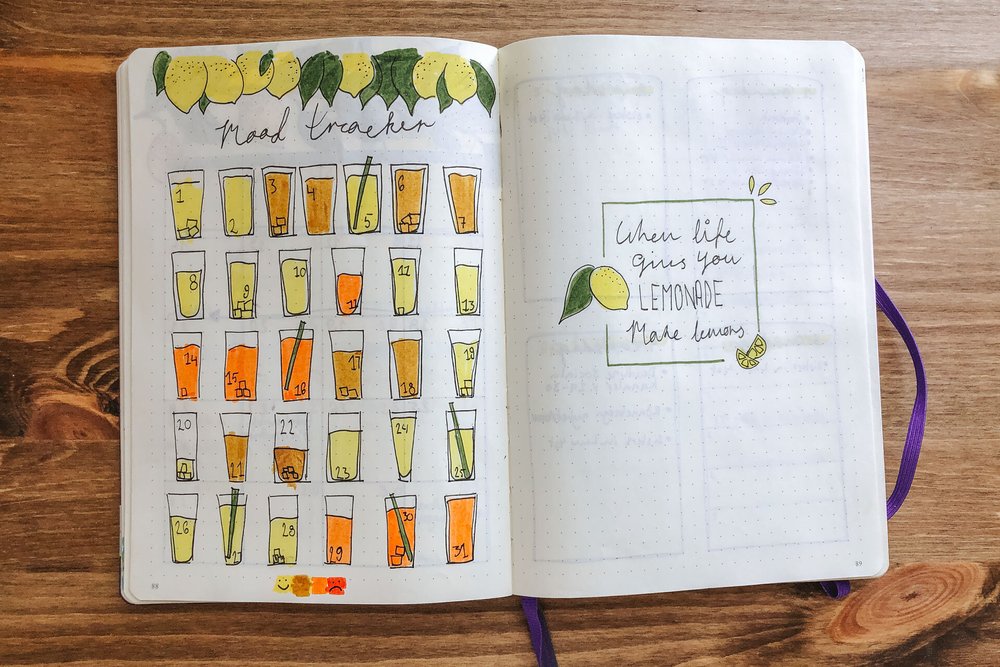 Mood tracker
1 2 3 4 5 6 7
8 9 10 11 12 13
14 15 16 17 18 19
20 21 22 23 24 25
26 27 28 29 30 31
88
When life
gives you
LEMONADE
Make lemons
89